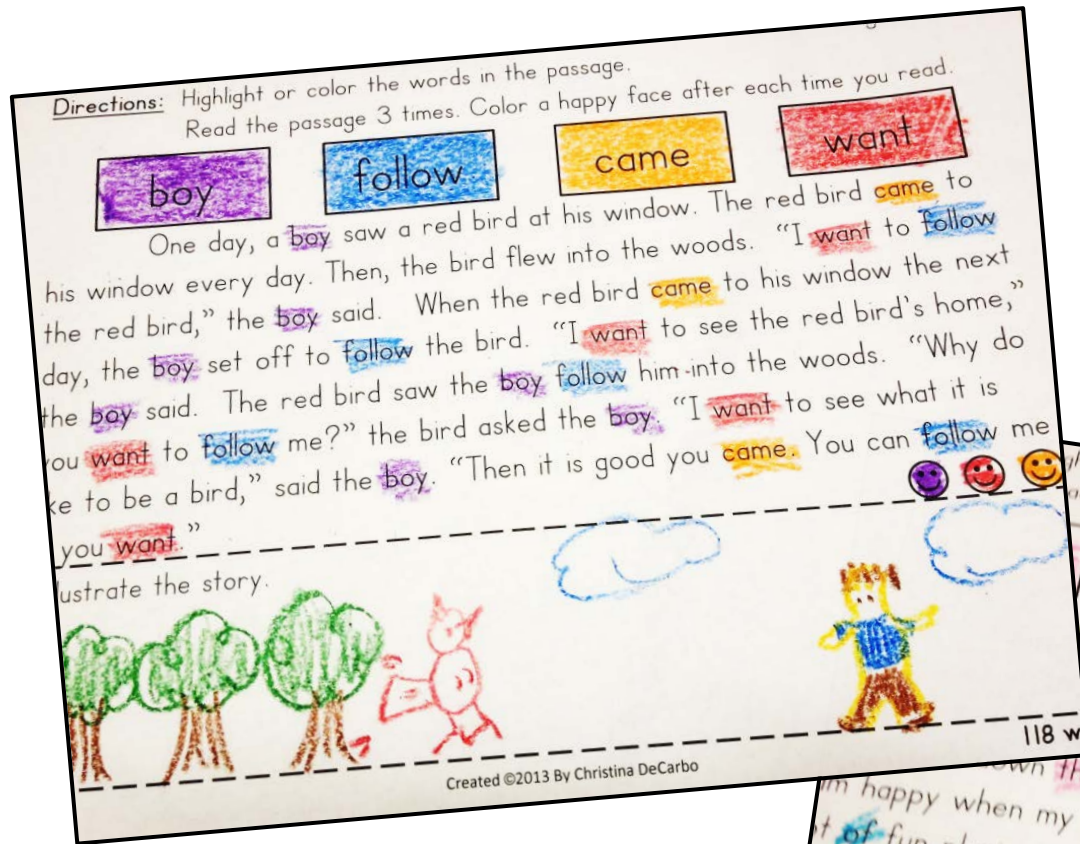 Directions: Highlight or color the words in the passage.
Read the passage 3 times. Color a happy face after each time you read.
boy follow came want
One day, a boy saw a red bird at his window. The red bird came to
his window every day. Then, the bird flew into the woods. "I want to follow
the red bird," the boy said. When the red bird came to his window the next
day, the boy set off to follow the bird. "I want to see the red bird's home,"
the boy said. The red bird saw the boy follow him into the woods. "Why do
ou want to follow me?" the bird asked the boy. "I want to see what it is
ke to be a bird," said the boy. "Then it is good you came. You can follow me
you want."
ustrate the story.
118 w
Created ©2013 By Christina DeCarbo
own th
m happy when my
t of fun